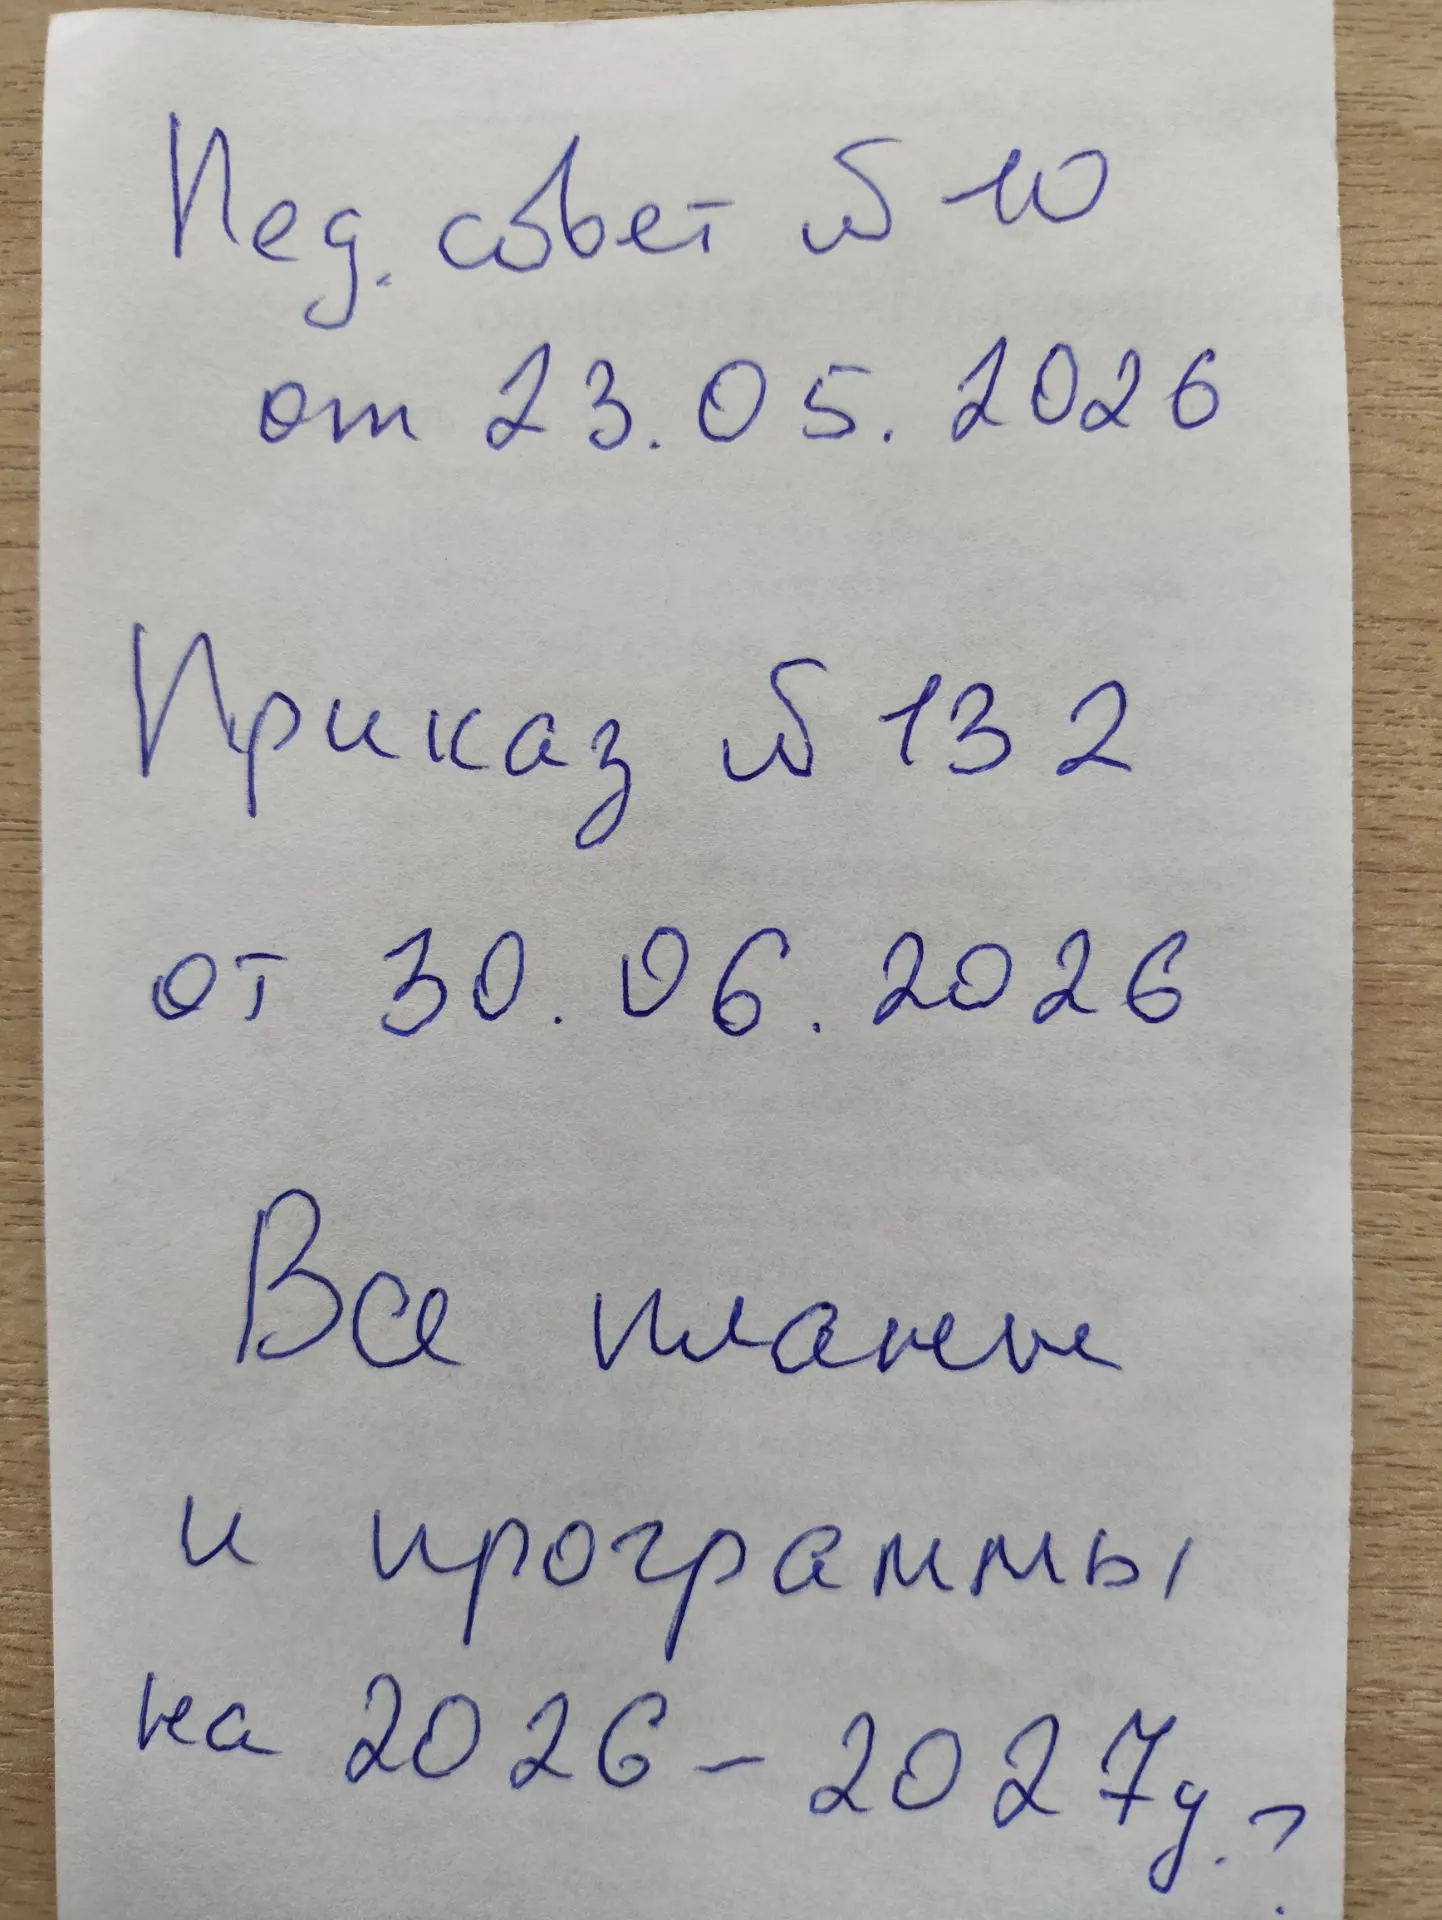 Пед. совет № 10
от 23.05.2026
Приказ № 132
от 30.06.2026
Все планы
и программы
на 2026-2027у.?